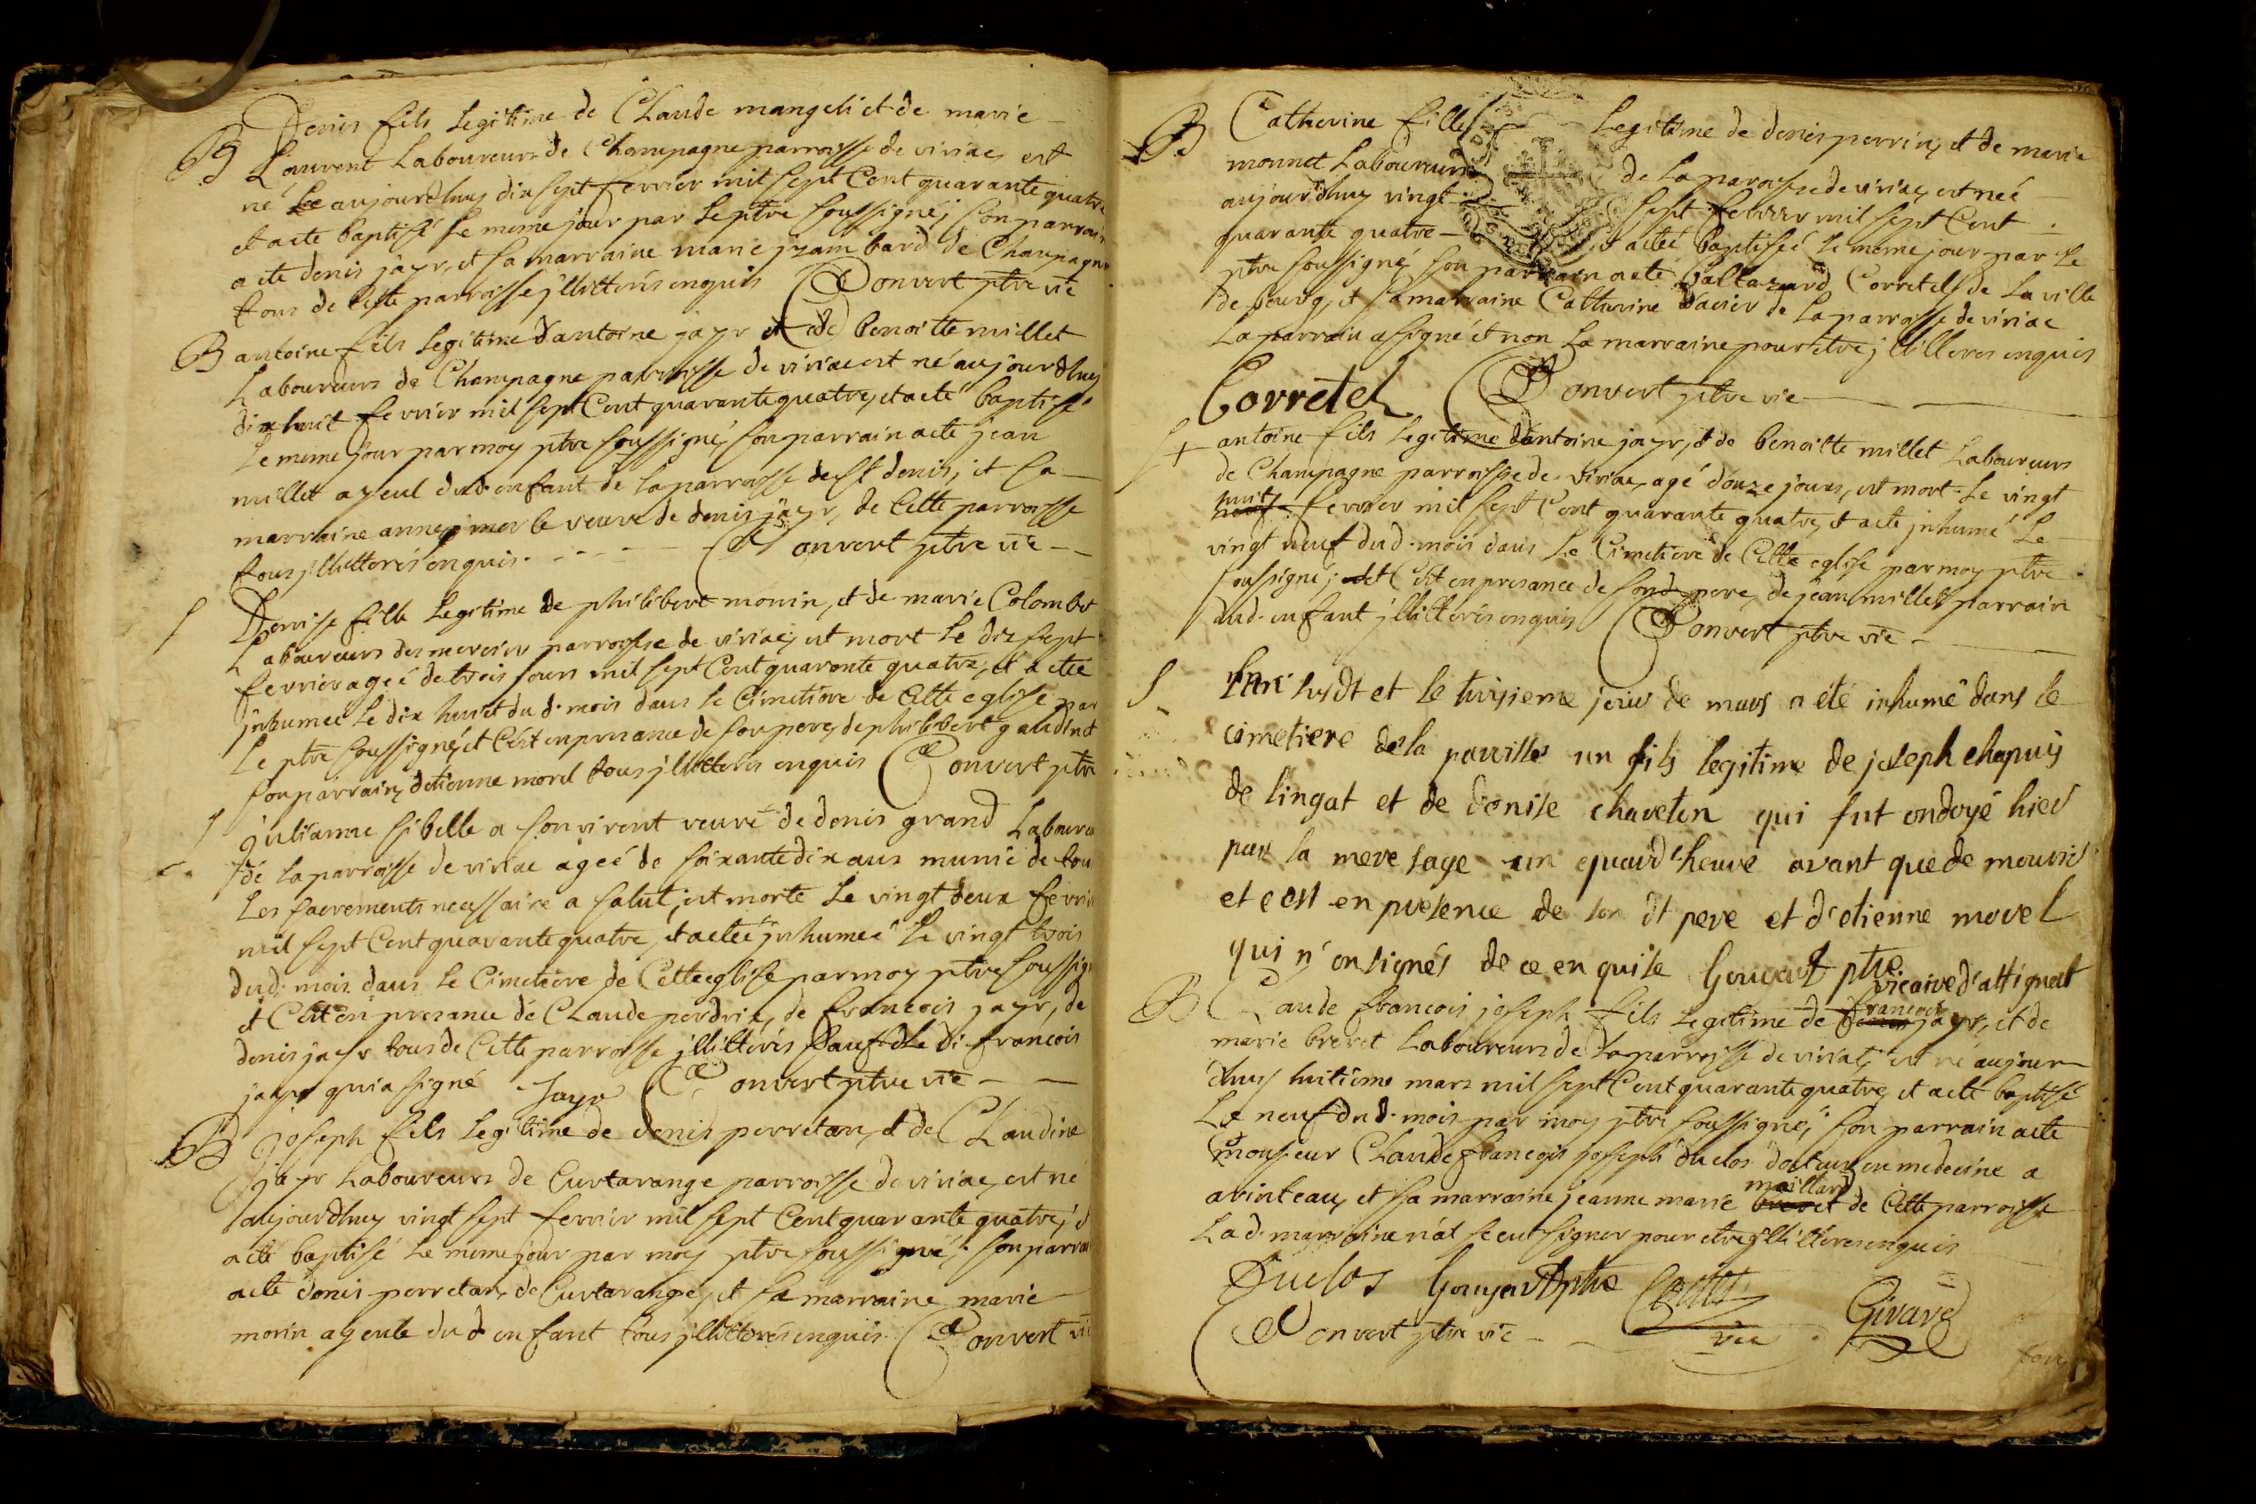 B Denis fils legitime de Claude mangeli et de marie
Laurent Laboureurs de Champagne parroisse de viriac est
né Le aujourdhuy dix sept fevrier mil sept Cent quarante quatre
et a eté baptisé le meme jour par le ptre soussigné, son parrain
a eté denis jayr, et sa marraine marie jzambard de Champagne
tous de Cette parroisse jllitterés enquis Convert ptre vic
B antoine fils legitime d'antoine jayr et de benoitte millet
Laboureurs de Champagne parroisse de viriac est né aujourdhuy
dix huit fevrier mil sept Cent quarante quatre, et a eté baptisé
le meme jour par moy ptre soussigné, son parrain a eté jean
millet ayeul dud. enfant de la parroisse de st denis, et sa
marraine anne veuve de denis jayr, de Cette parroisse
tous jllitterés enquis. Convert ptre vic
S Denise fille legitime de philibert monin, et de marie Colombet
Laboureurs des merciers parroisse de viriac, est mort le dix sept
fevrier ageé de trois jours mil sept Cent quarante quatre, et a eteé
jnhumeé le dix huit du d. mois dans le Cimetiere de Cette eglise par
le ptre soussigné, et C'est en presance de son pere, de philibert gaudinet
son parrain, d'etienne morel tous jllitterés enquis Convert ptre
S julianne sibelle a son vivent veuve de denis grand Laboureur
de la parroisse de viriac ageé de soixante dix ans munie de tou
les sacrements necessaire a salut, est morte le vingt deux fevrier
mil sept Cent quarante quatre, et a eteé jnhumeé le vingt trois
dud. mois dans le Cimetiere de Cette eglise par moy ptre soussigné
et C'est en presance de Claude perdrix, de francois jayr, de
denis jayr tous de Cette parroisse jllitterés sauf Le d. francois
jayr qui a signé Jayr Convert ptre vic
B joseph fils legitime de denis perretan, et de Claudine
jayr Laboureurs de Curtarange parroisse de viriac, est né
aujourdhuy vingt sept fevrier mil sept Cent quarante quatre, et
a eté baptisé le meme jour par moy ptre soussigné, son parrain
a eté denis perretan, de Curtarange, et sa marraine marie
morin ayeule du d enfant tous jllitterés enquis. Convert vic
B Catherine fille Legitime de denis perrin, et de marie
monnet Laboureurs de La paroisse de viriac, est neé
aujourdhuy vingt sept fevrier mil sept Cent
quarante quatre et a eteé baptiseé le meme jour par le
ptre soussigné, son parrain a eté baltazard Corretel de La ville
de bourg, et sa marraine Catherine Davier de la parroisse de viriac
Le parrain a signé et non La marraine pour etre jllitteres enquis
Corretel Convert ptre vic
S + antoine fils legitime d'antoine jayr, et de benoitte millet Laboureurs
de Champagne parroisse de viriac, agé d'ouze jours, est mort le vingt
huit
neuf fevrier mil sept Cent quarante quatre, et a eté jnhumé le
vingt neuf dud. mois dans le Cimetiere de Cette eglise par moy ptre
soussigné, et C'est en presance de sond. pere, de jean millet parrain
dud. enfant jllitterés enquis Convert ptre vic
S L'an susdt et le troisieme jour de mars a eté inhumé dans le
cimetiere de la paroisse un fils legitime de joseph chapuis
de lingat et de denise chaveton qui fut ondoyé hier
par la mere sage un quard'heure avant que de mourir
et c'est en presence de son dt pere et d'etienne morel
qui n'on signés de ce enquise Goujart ptre
vicaire d'attignat
B Claude francois joseph fils legitime de francois jayr, et de
marie brevet Laboureurs de La parroisse de viriat, est né aujour
dhuy huitieme mars mil sept Cent quarante quatre, et a eté baptisé
Le neuf du d. mois par moy ptre soussigné, son parrain a eté
monsieur Claude francois joseph duclos docteur en medecine a
avinteau, et sa marraine jeanne marie maillard de Cette parroisse
La d. marraine n'at sceut signer pour etre jllitteres enquis
Duclos Goujart ptre
Convert ptre vic vic Girard